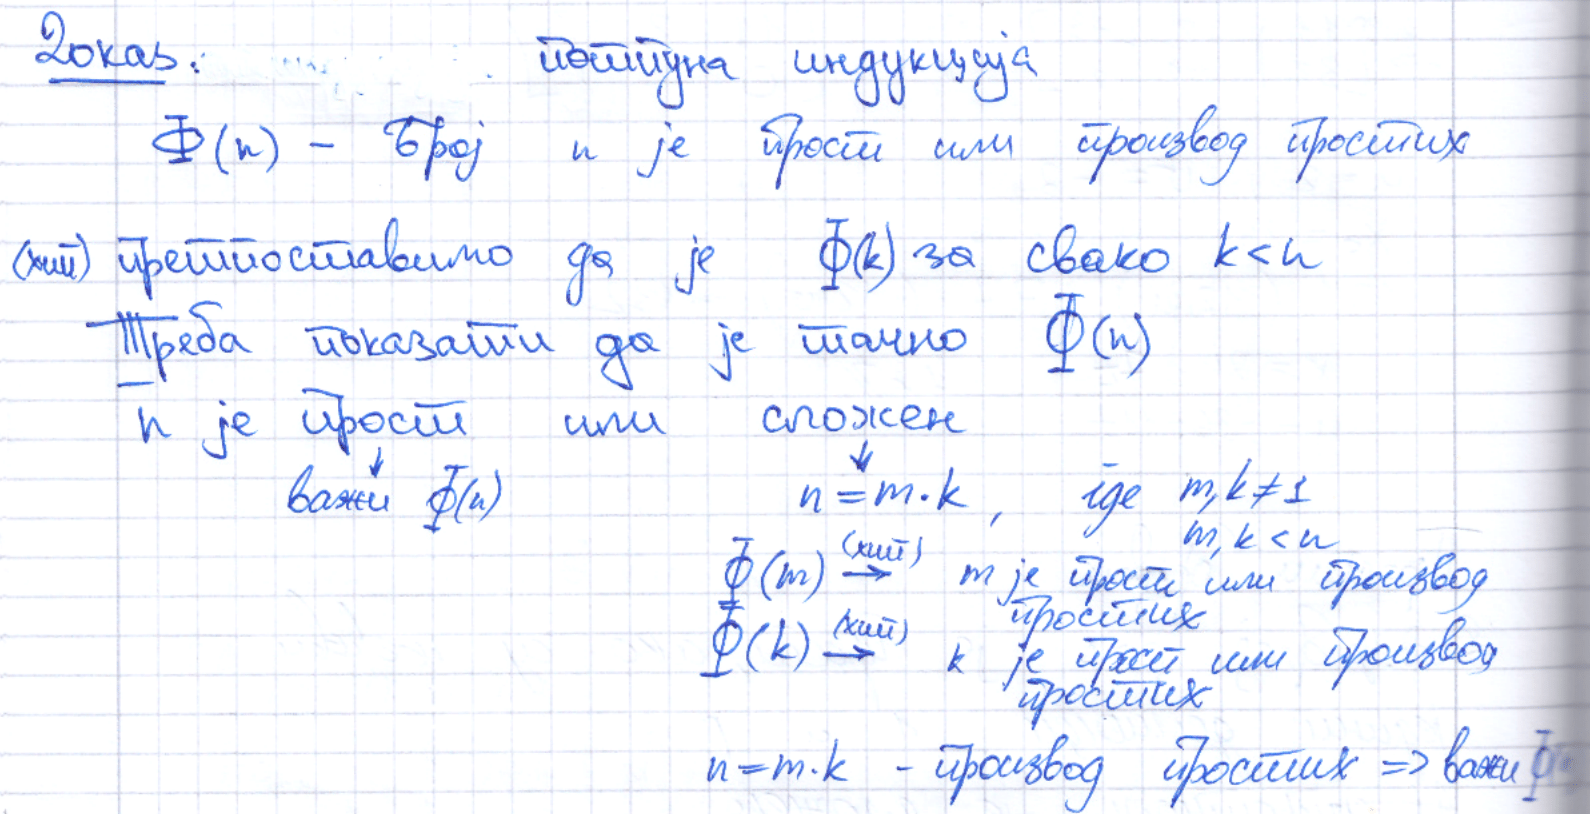 Доказ: потпуна индукција
Φ(n) – број n је прост или производ простих
(хип) претпоставимо да је Φ(k) за свако k<n
Треба показати да је тачно Φ(n)
n је прост или сложен
↓ ↓
важи Φ(n) n=m·k, где m,k≠1
m,k<n
Φ(m) (хип)→ m је прост или производ
простих
Φ(k) (хип)→ k је прост или производ
простих
n=m·k – производ простих => важи